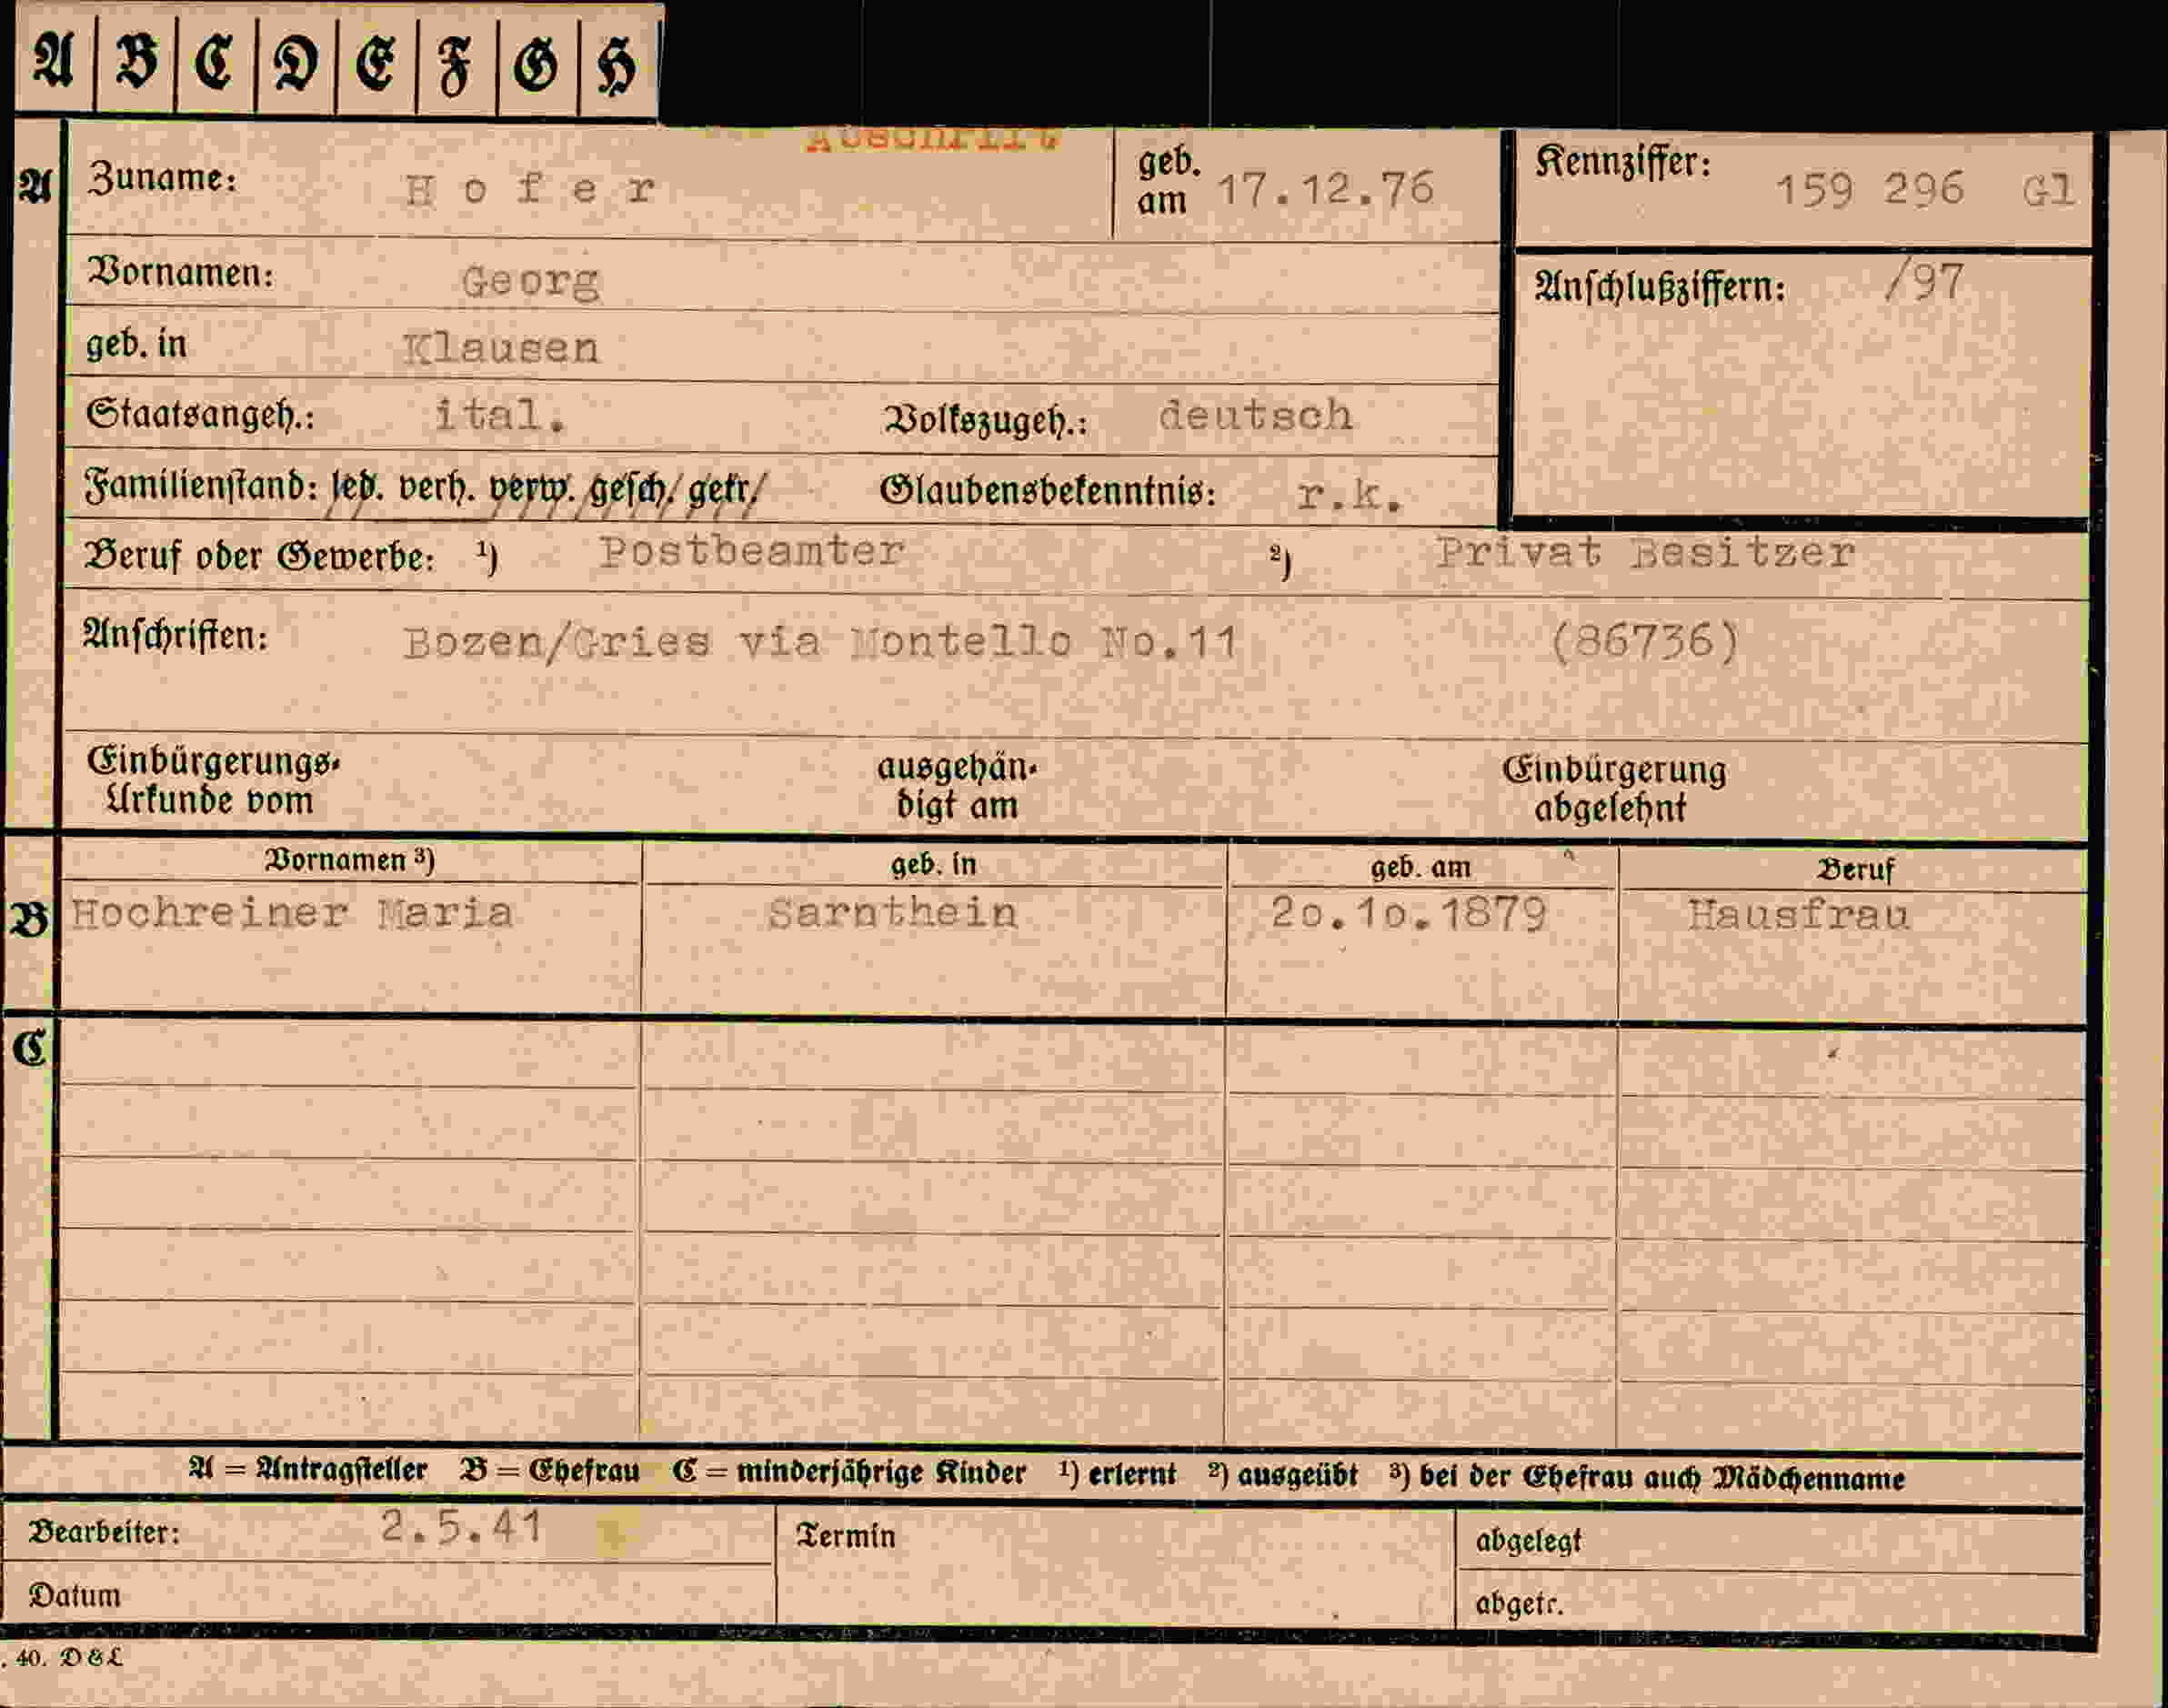 A B C D E F G H
Abschrift
A Zuname: Hofer geb. am 17.12.76 Kennziffer: 159 296 Gl
Vornamen: Georg Anschlußziffern: /97
geb. in Klausen
Staatsangeh.: ital. Volkszugeh.: deutsch
Familienstand: led. verh. verw. gesch. getr. Glaubensbekenntnis: r.k.
Beruf oder Gewerbe: ¹) Postbeamter ²) Privat Besitzer
Anschriften: Bozen/Gries via Montello No.11 (86736)
Einbürgerungs- ausgehän- Einbürgerung
Urkunde vom digt am abgelehnt
Vornamen ³) geb. in geb. am Beruf
B Hochreiner Maria Sarnthein 20.10.1879 Hausfrau
C
A = Antragsteller B = Ehefrau C = minderjährige Kinder ¹) erlernt ²) ausgeübt ³) bei der Ehefrau auch Mädchenname
Bearbeiter: 2.5.41 Termin abgelegt
Datum abgetr.
. 40. D & L